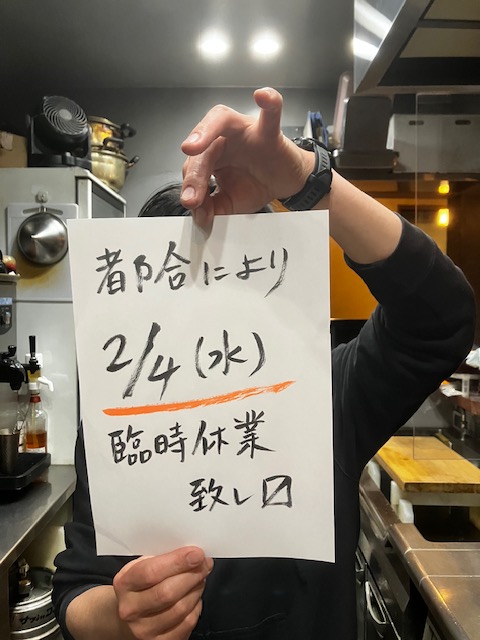 都合により
2/4(水)
臨時休業
致し〼